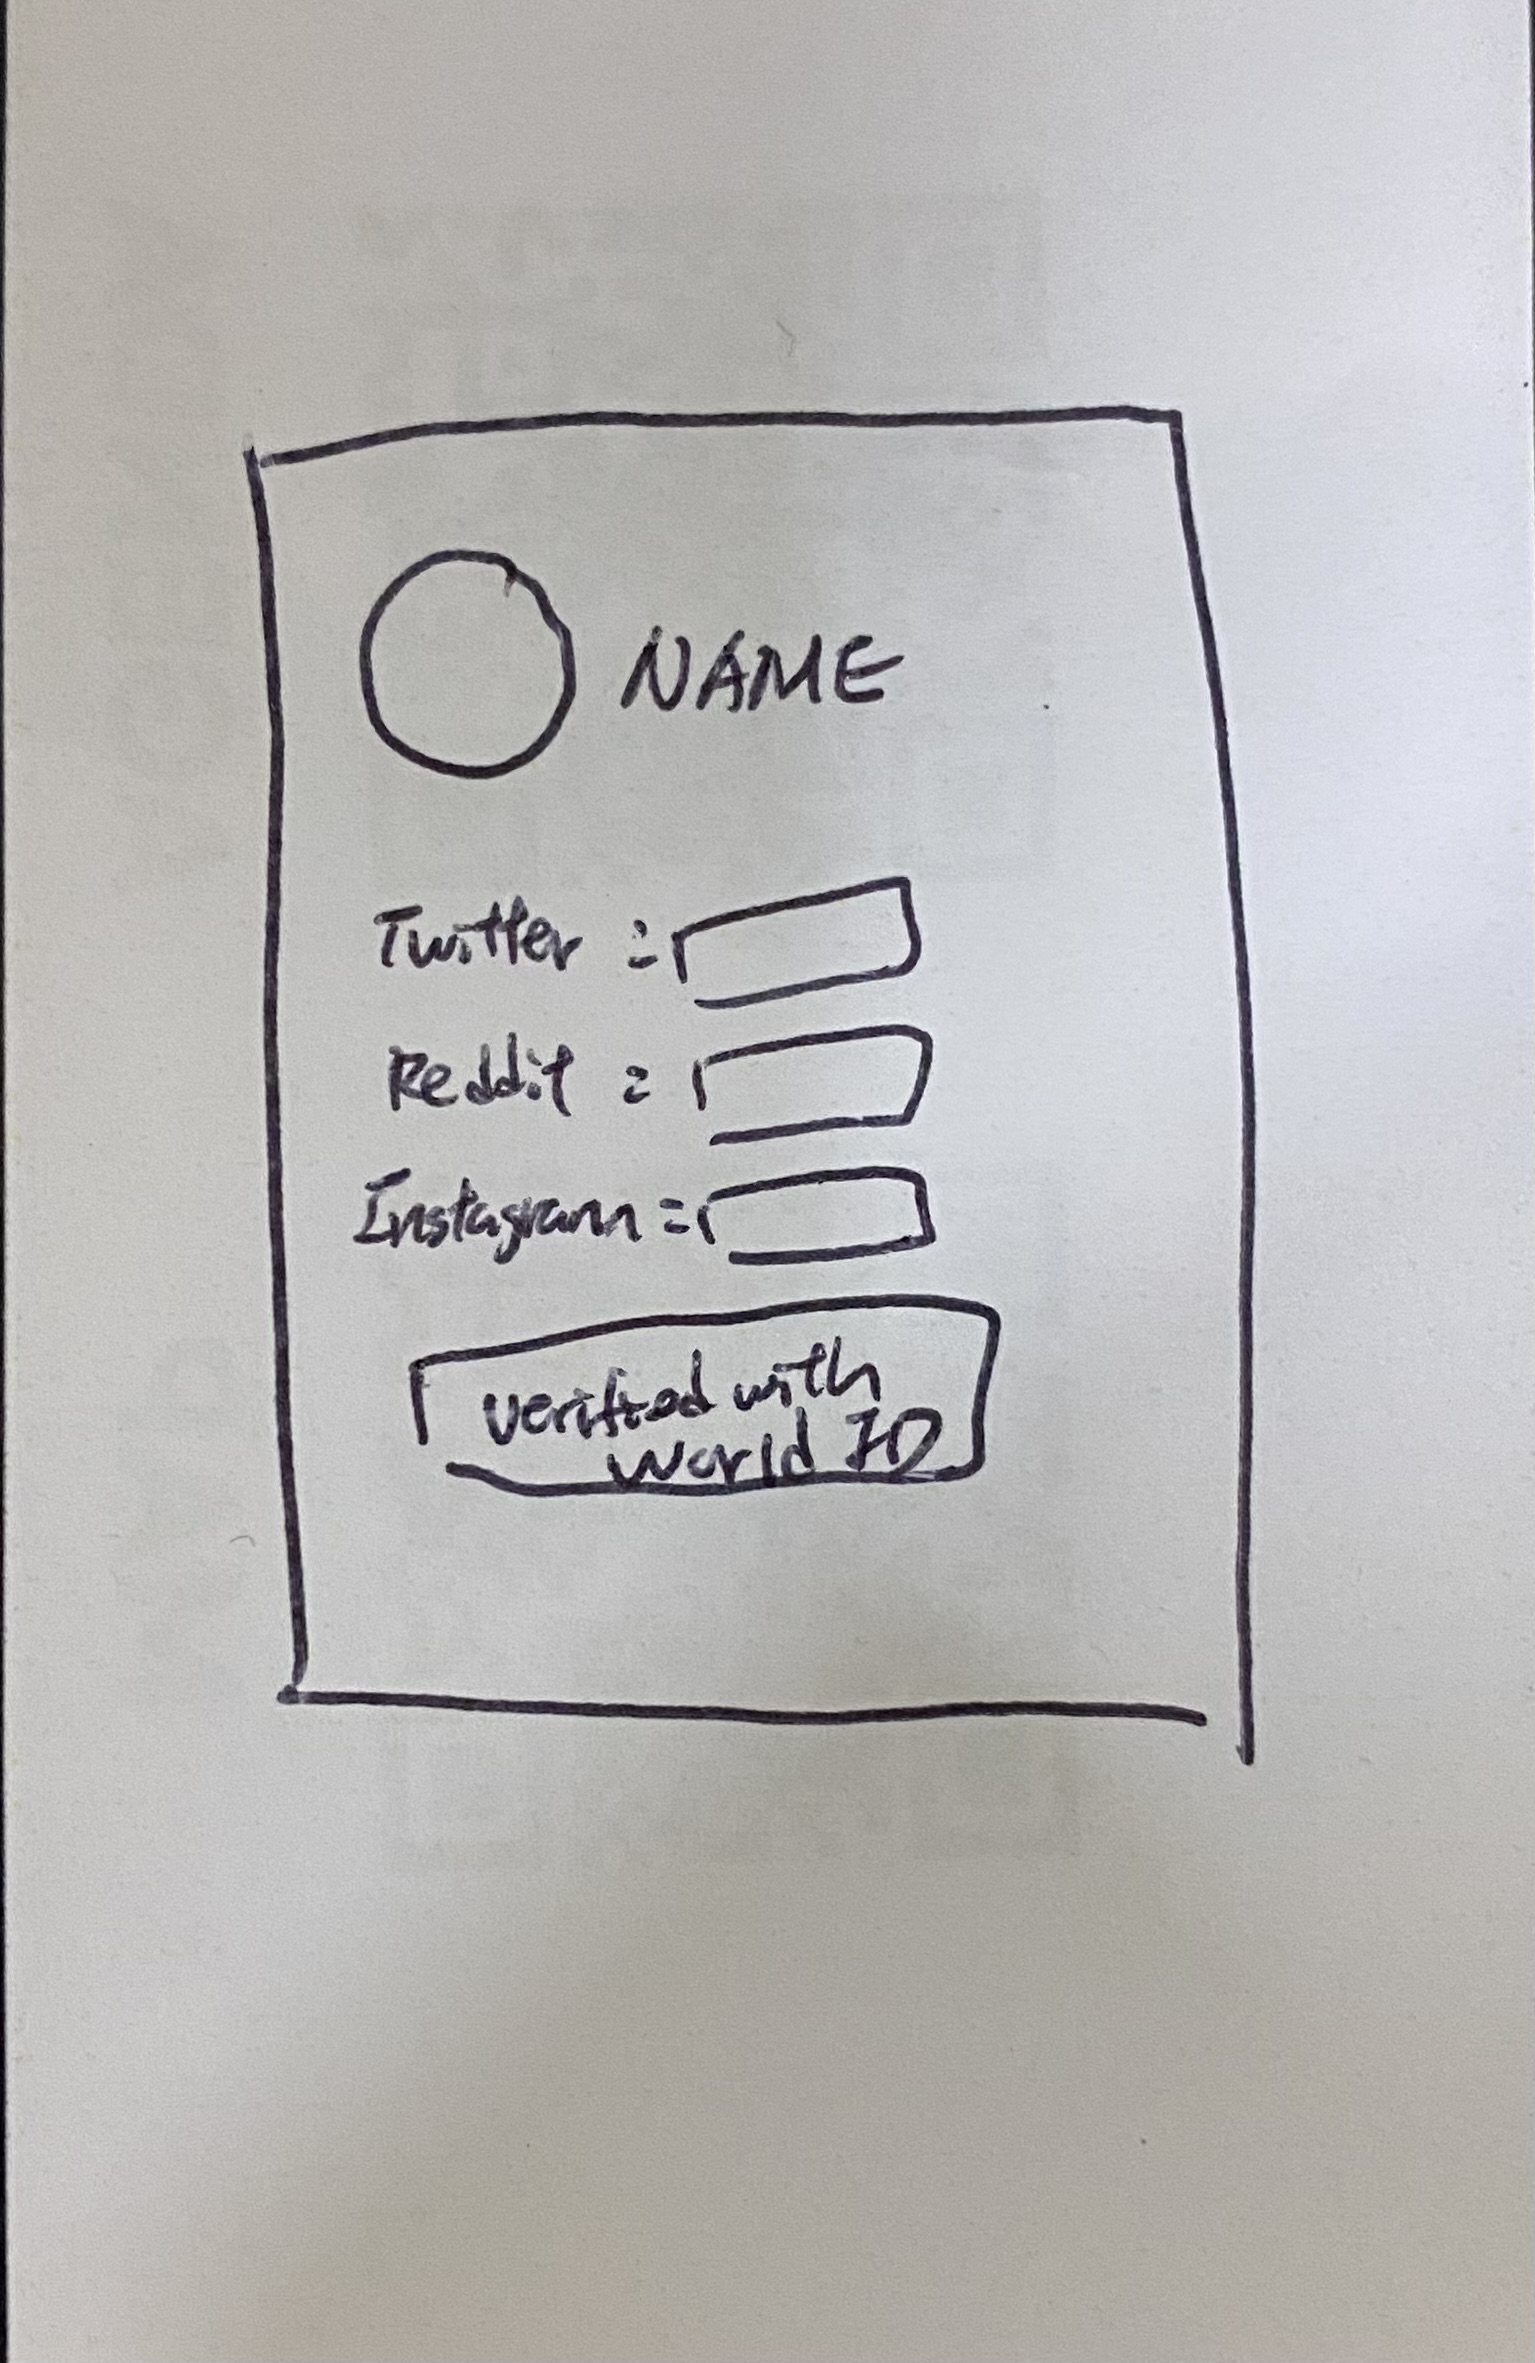 NAME
Twitter :
Reddit :
Instagram :
Verified with
World ID